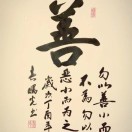 善
勿以善小而
不為勿以
惡小而為之
丁酉年